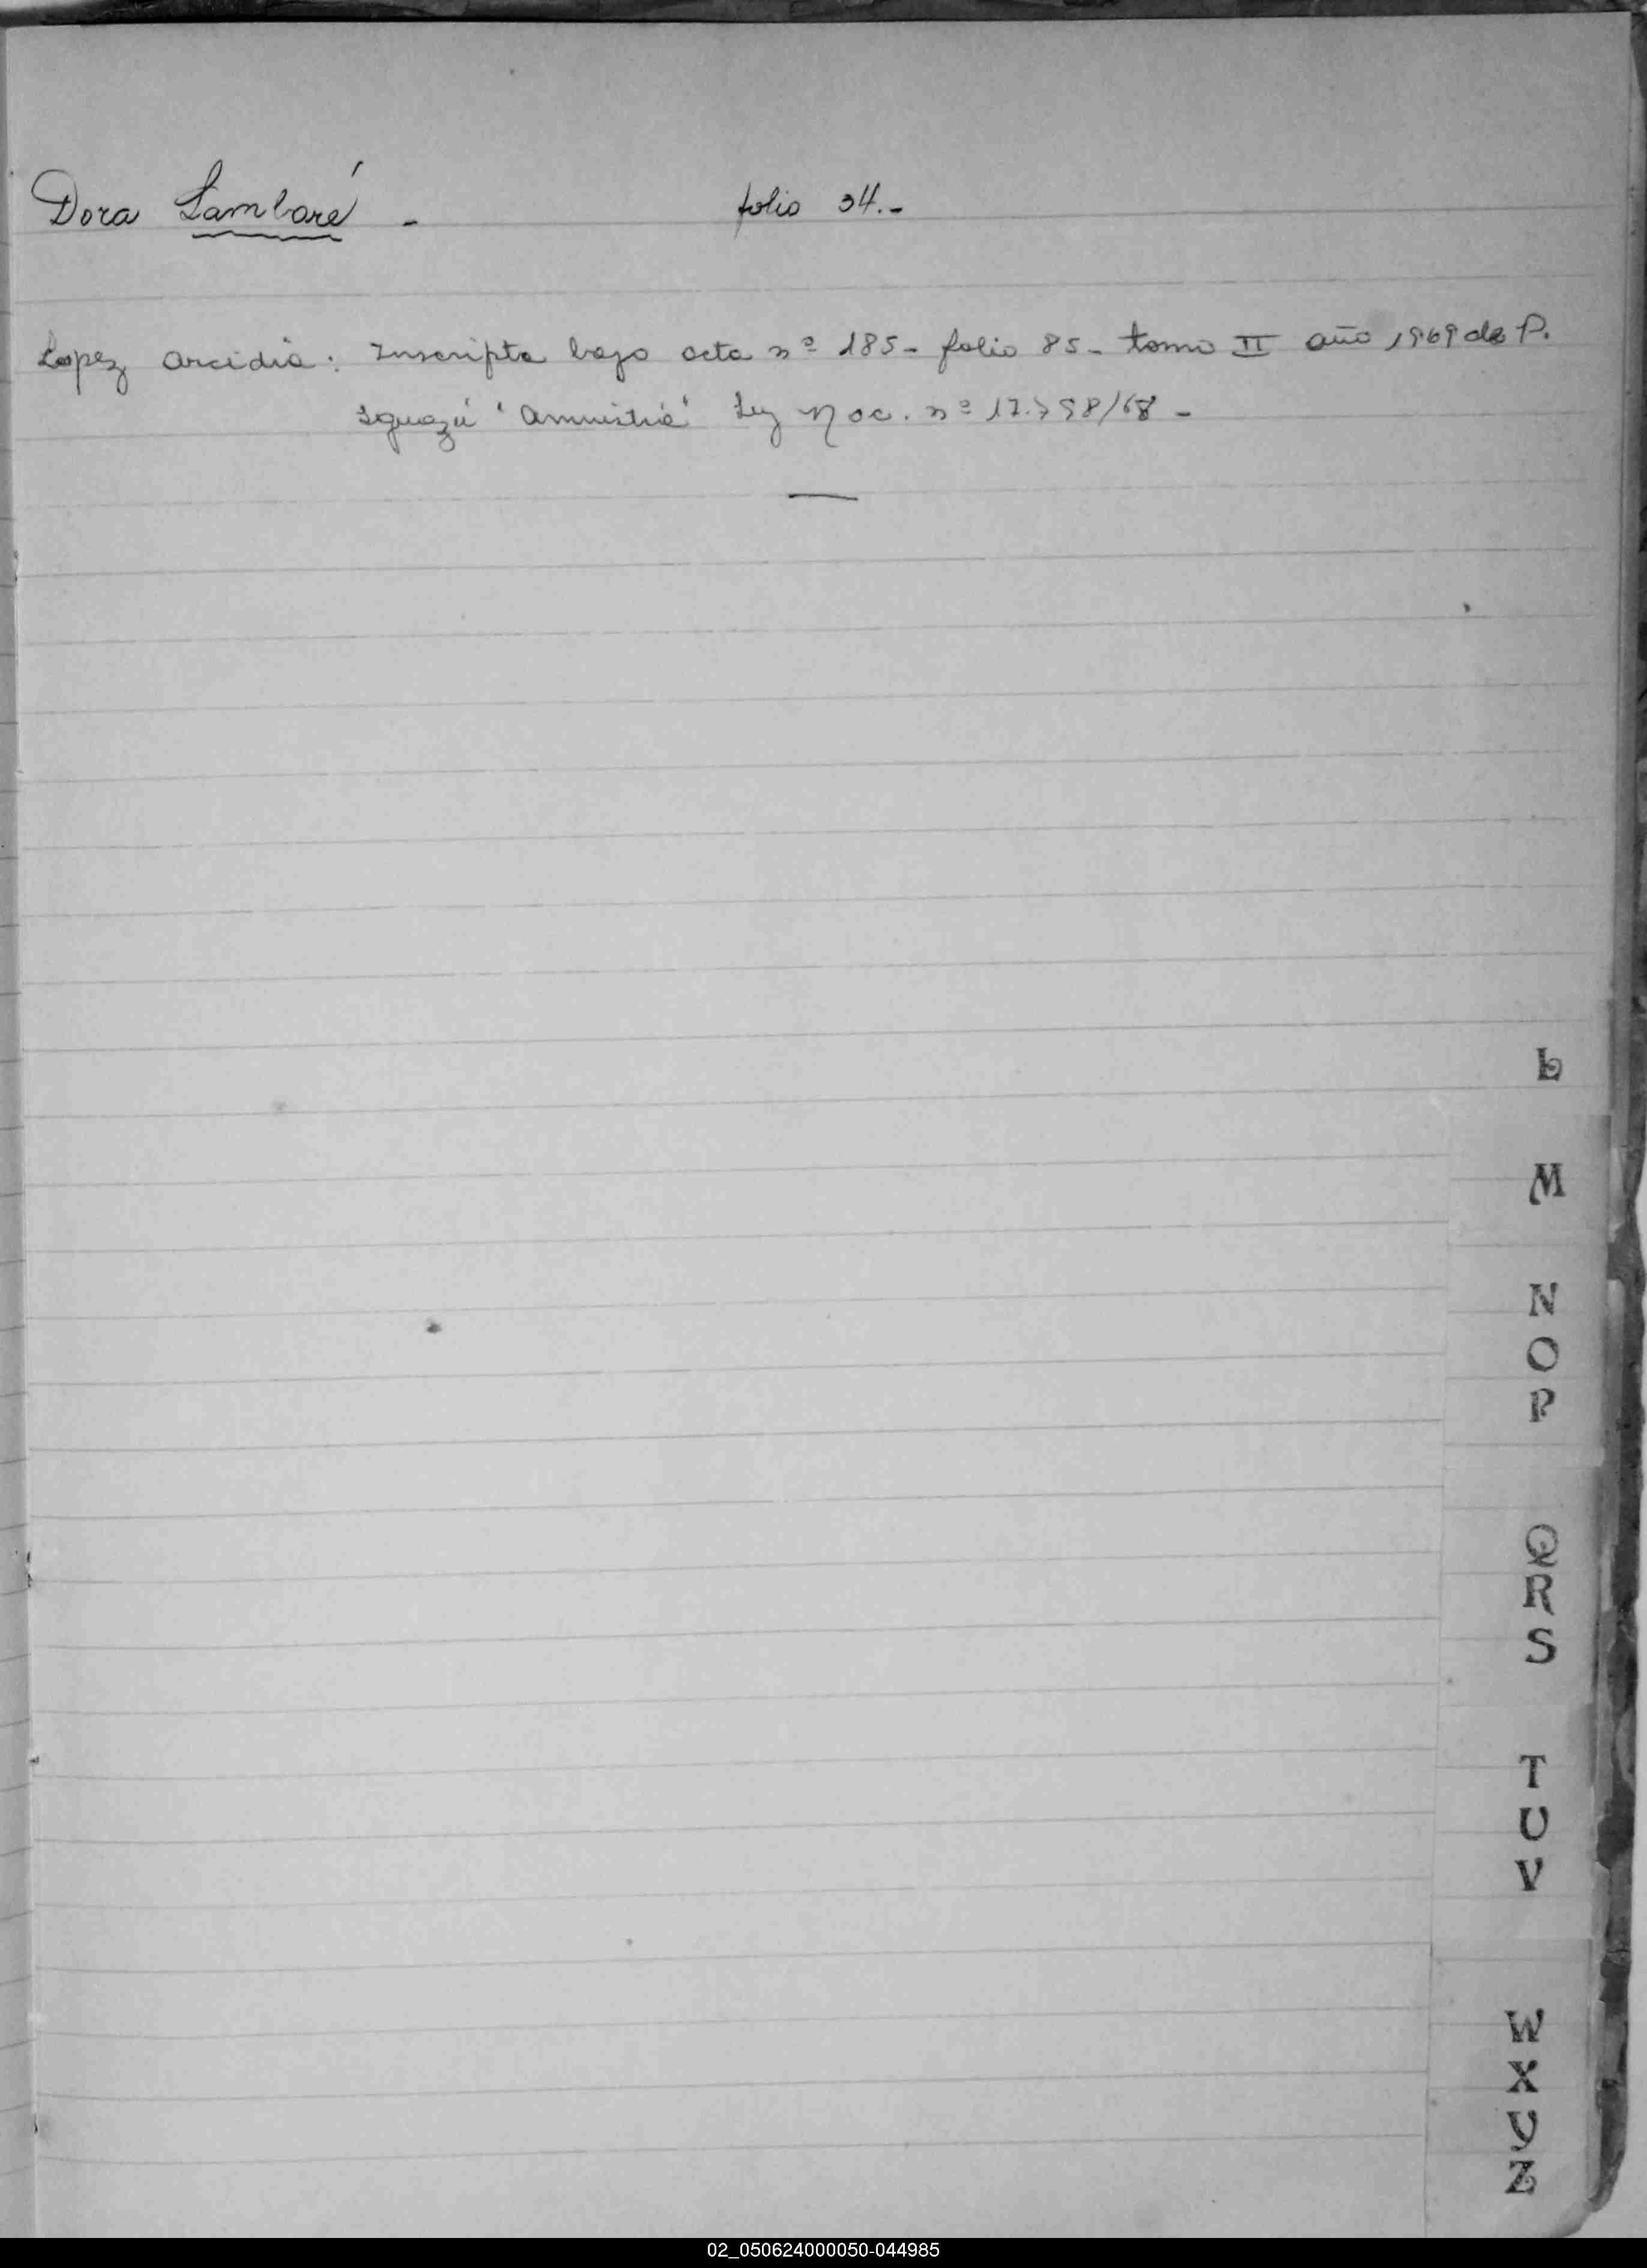 Dora Lambaré - folio 34.-
Lopez Arcidia: Inscripta bajo acta nº 185- folio 85- tomo II año 1969 de P.
Iguazú "Amnistía" Ley Nac. nº 17.798/68 -
L
M
N
O
P
Q
R
S
T
U
V
W
X
Y
Z
02_050624000050-044985